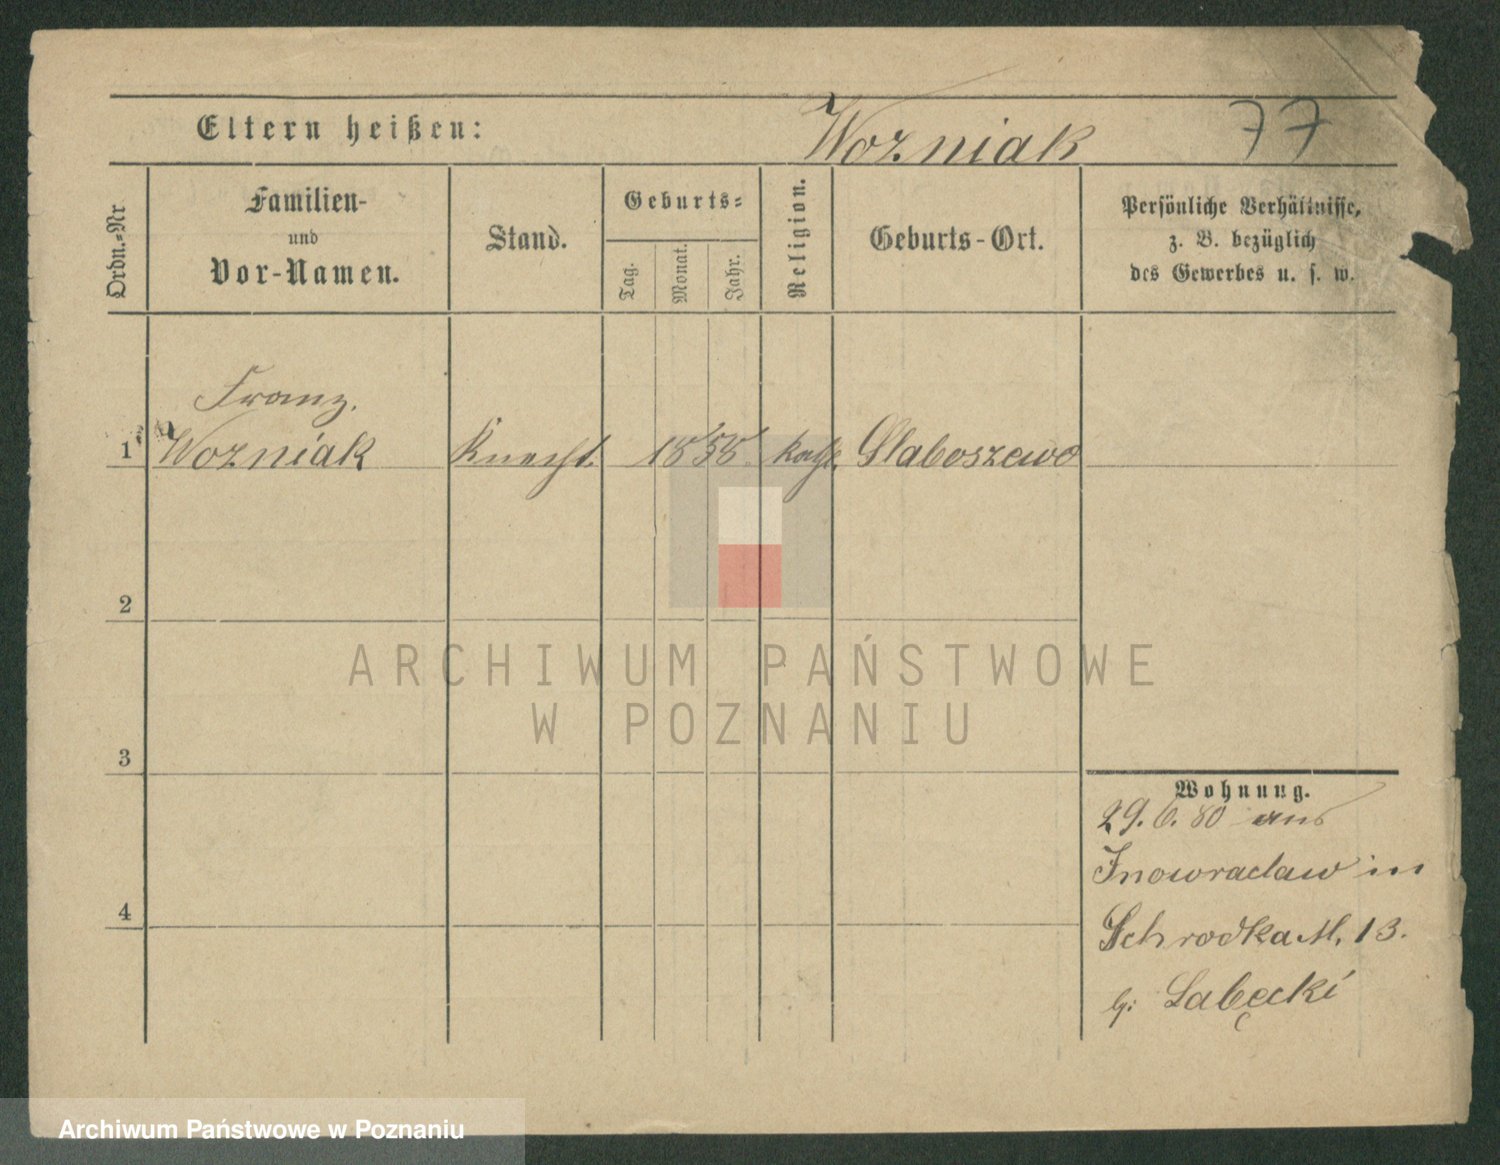 Eltern heißen: Wozniak 77
Ordn.-Nr
Familien-
und
Vor-Namen.
Stand.
Geburts-
Tag.
Monat.
Jahr.
Religion.
Geburts-Ort.
Persönliche Verhältnisse,
z. B. bezüglich
des Gewerbes u. s. w.
Franz.
1 Wozniak Knecht. 1858 kath. Slaboszewo
2
ARCHIWUM PAŃSTWOWE
W POZNANIU
3
Wohnung.
29.6.80 aus
Inowraclaw in
4
Schrodka M. 13.
b: Labęcki
Archiwum Państwowe w Poznaniu